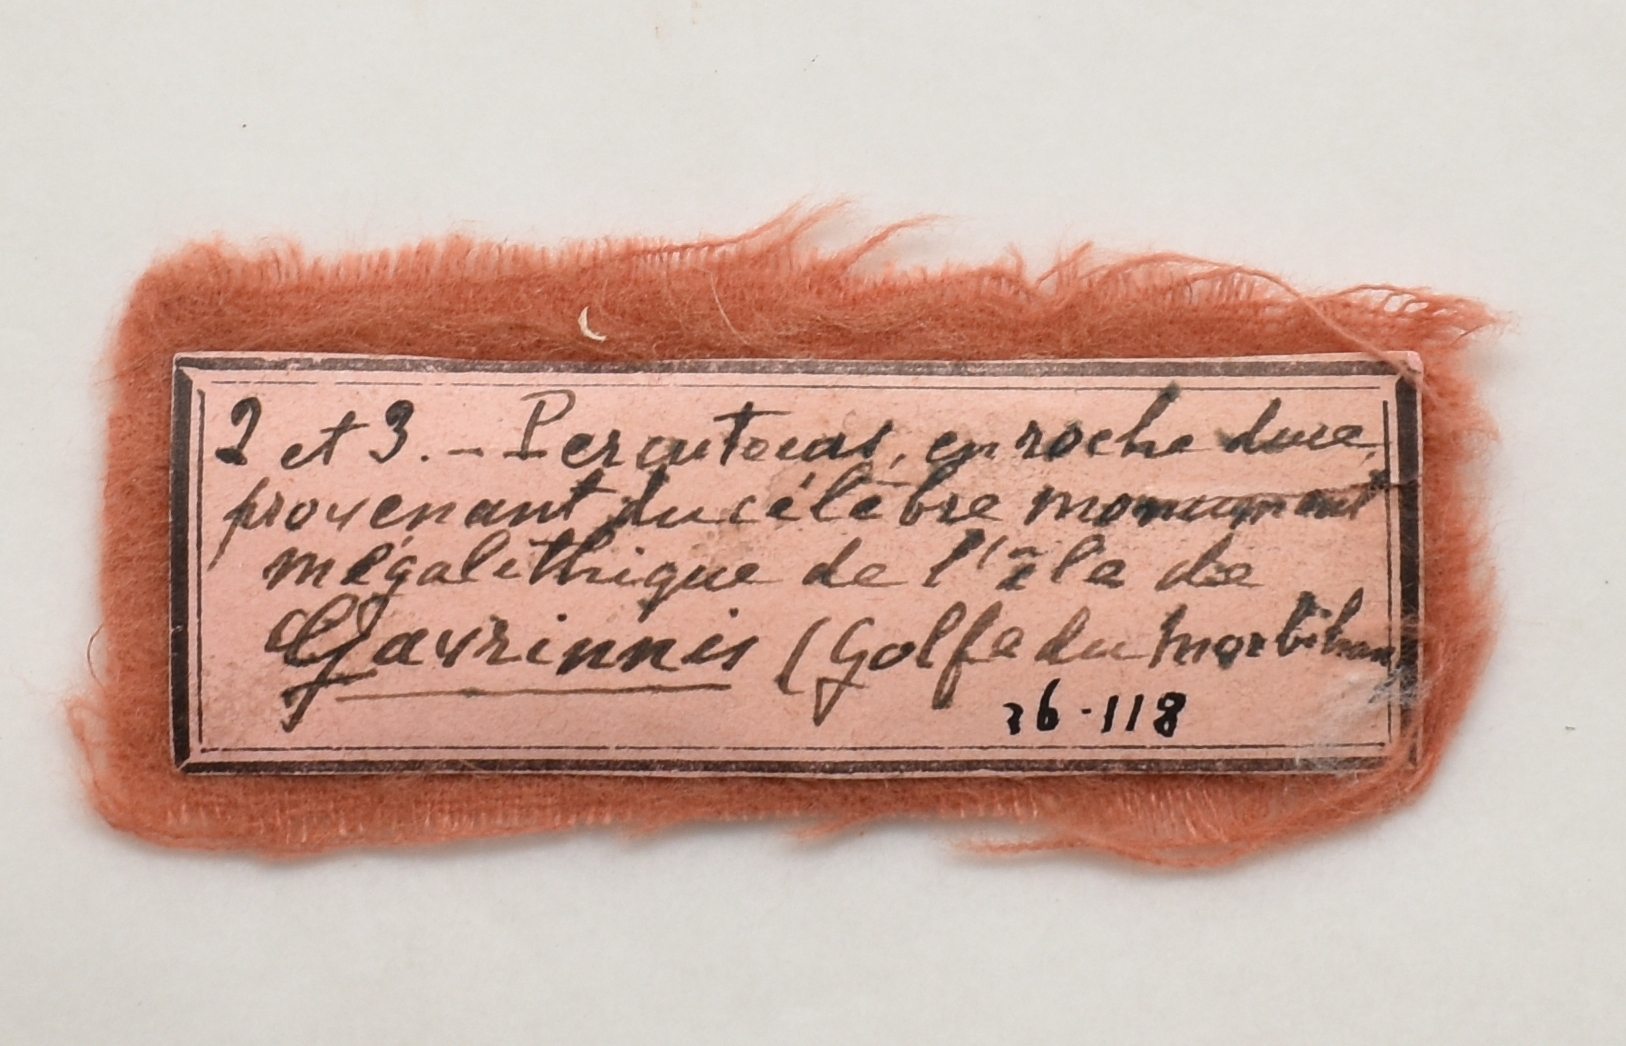 2 et 3. – Percuteurs, en roche dure,
provenant du célèbre monument
mégalithique de l'île de
Gavrinnis (Golfe du Morbihan)
26-118